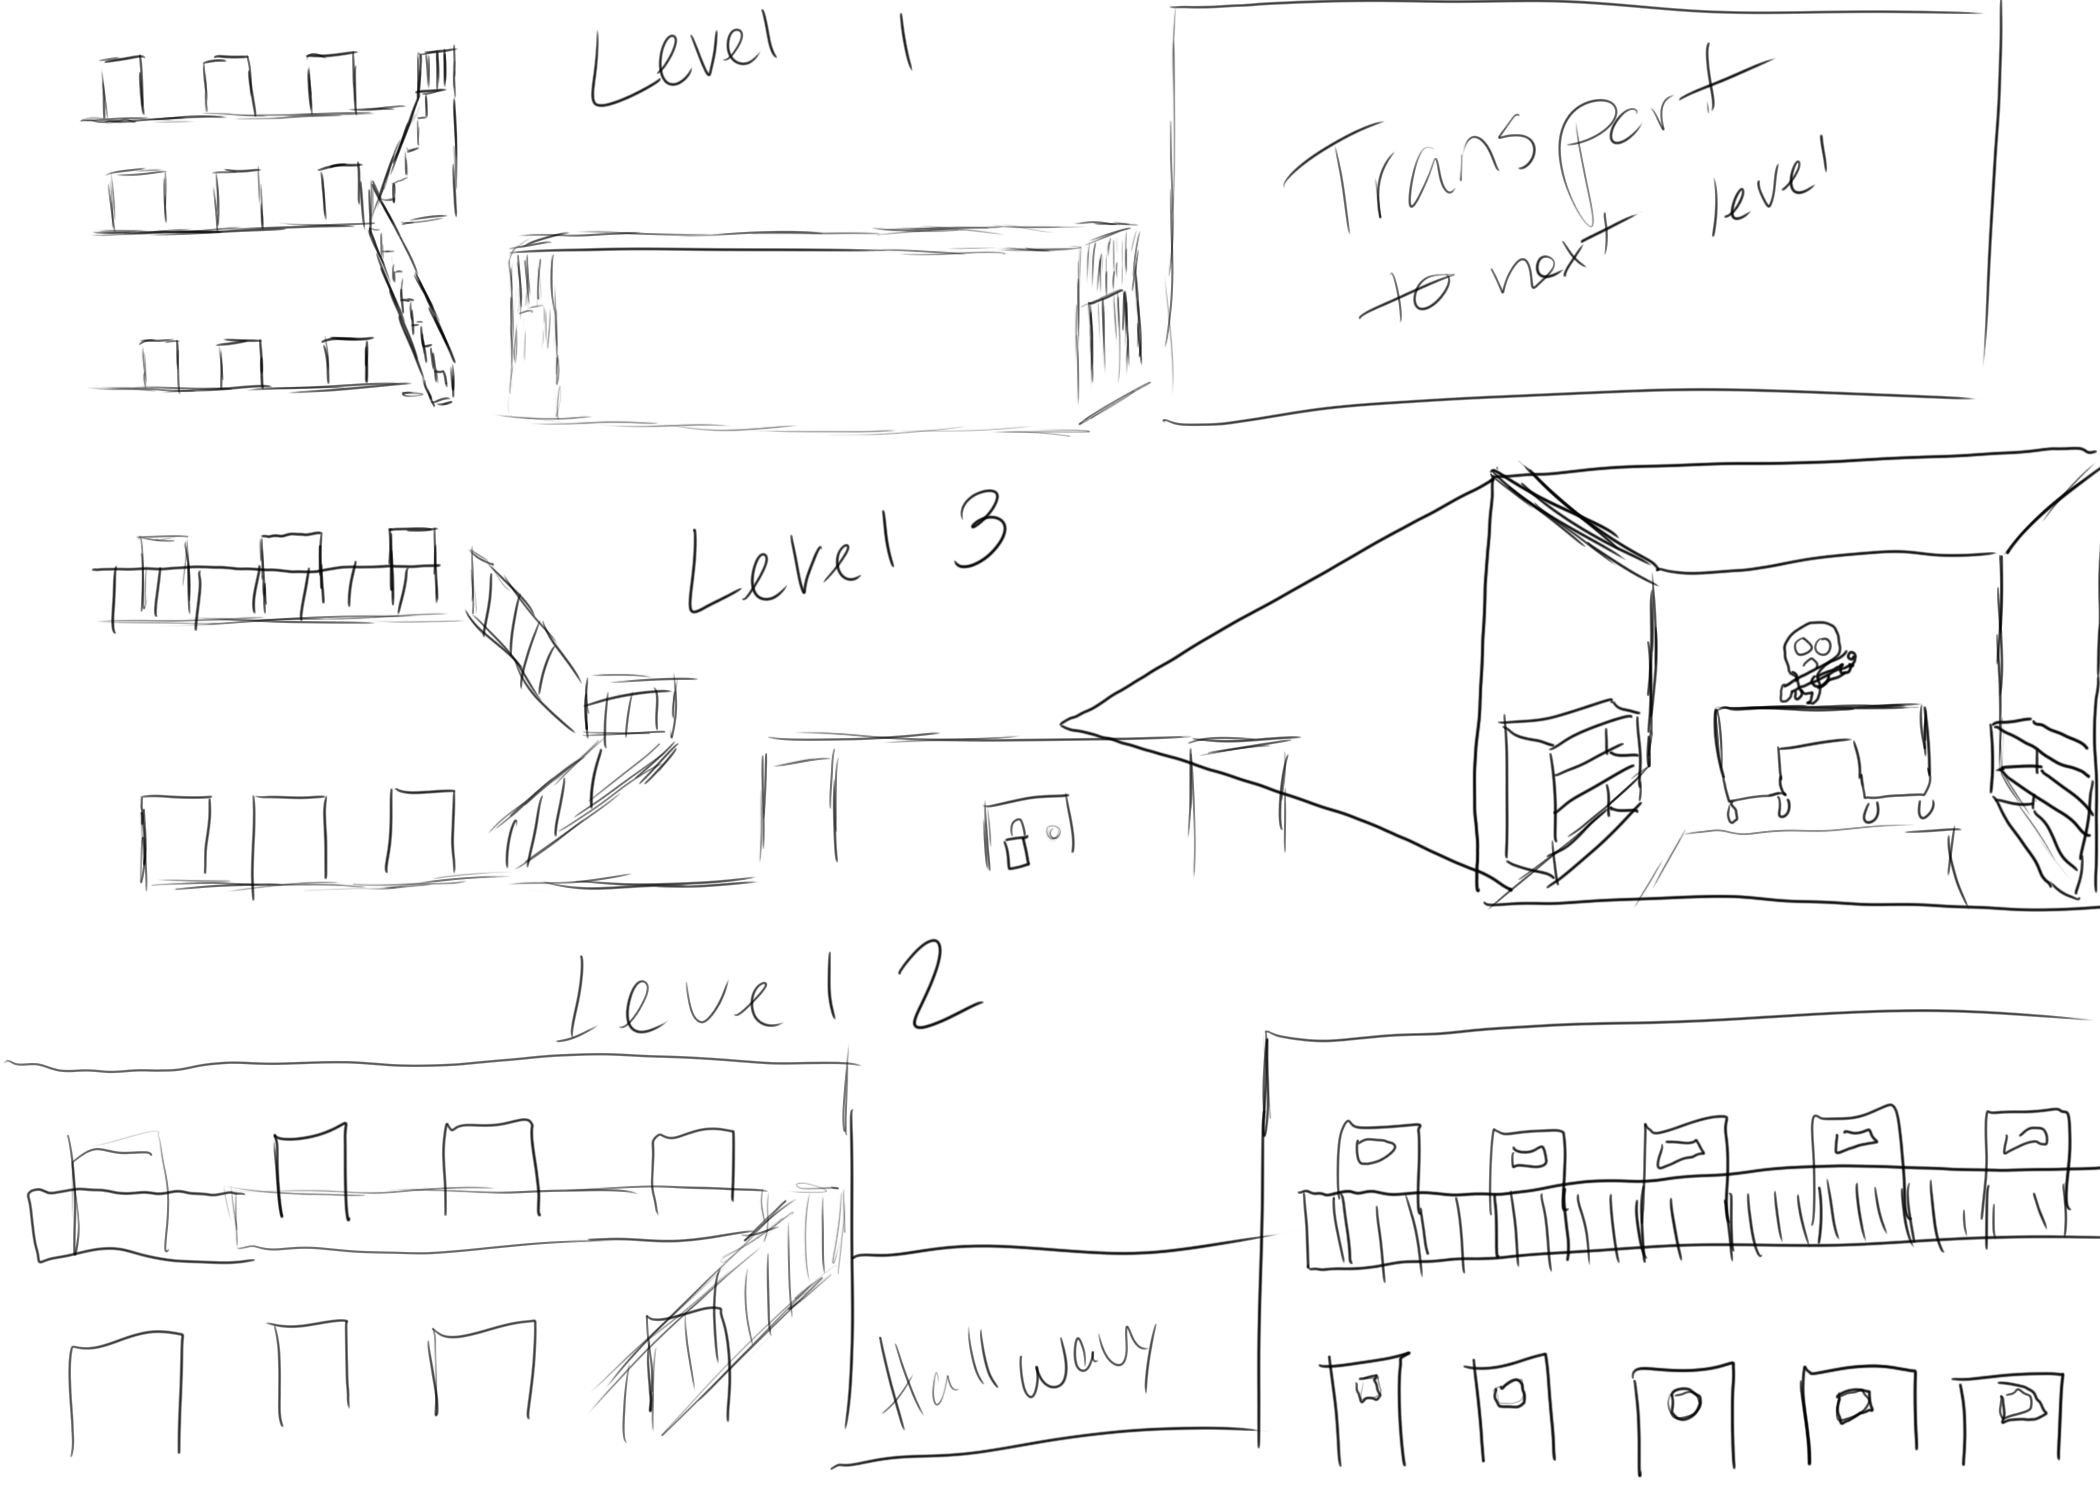 Level 1
Transport
to next level
Level 3
Level 2
Hallway